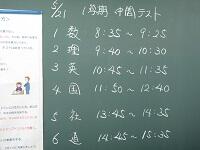 5/21 1学期 中間テスト
1 数 8:35 ～ 9:25
2 理 9:40 ～ 10:30
3 英 10:45 ～ 11:35
4 国 11:50 ～ 12:40
5 社 13:45 ～ 14:35
6 道 14:45 ～ 15:35